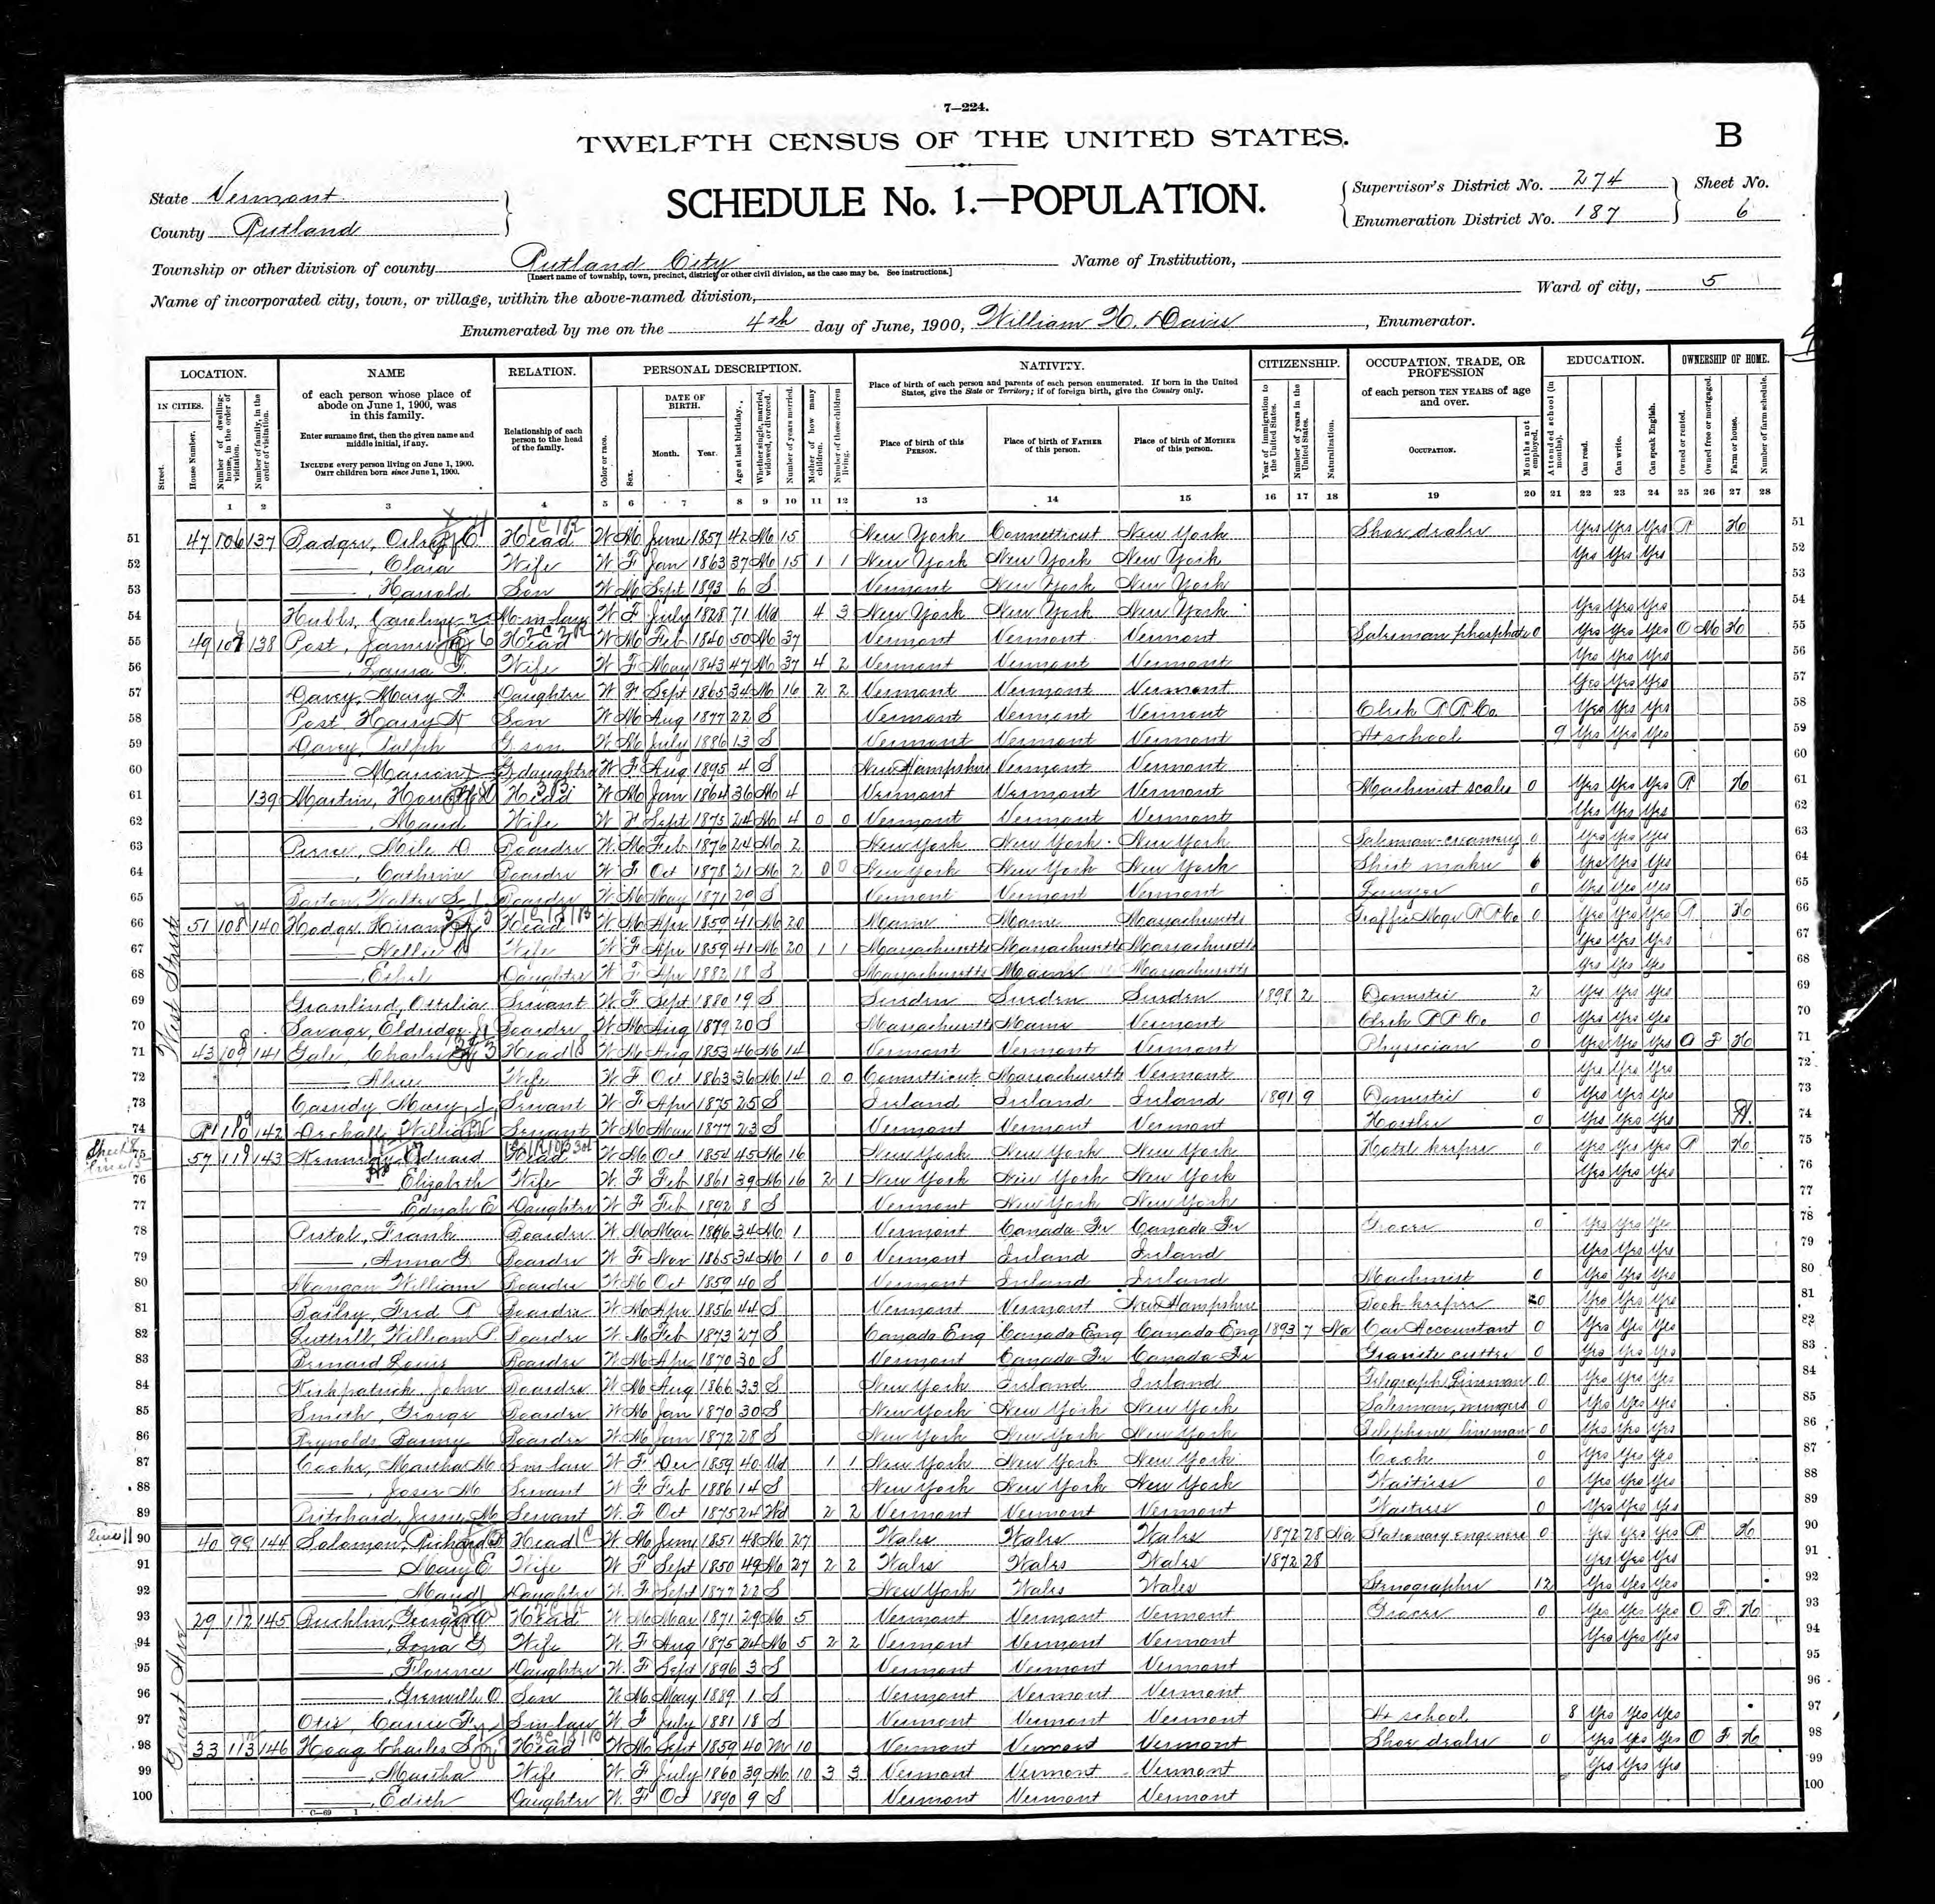 7—224.
TWELFTH CENSUS OF THE UNITED STATES.
B
SCHEDULE No. 1.—POPULATION.
State Vermont
County Rutland
Supervisor's District No. 274
Enumeration District No. 187
Sheet No.
6
Township or other division of county Rutland City
[Insert name of township, town, precinct, district, or other civil division, as the case may be. See instructions.]
Name of Institution,
Name of incorporated city, town, or village, within the above-named division,
Ward of city, 5
Enumerated by me on the 4th day of June, 1900, William H. Davis, Enumerator.
LOCATION. NAME RELATION. PERSONAL DESCRIPTION. NATIVITY. CITIZENSHIP. OCCUPATION, TRADE, OR PROFESSION EDUCATION. OWNERSHIP OF HOME.
IN CITIES.
Street.
House Number.
Number of dwelling-house, in the order of visitation.
Number of family, in the order of visitation.
of each person whose place of abode on June 1, 1900, was in this family.
Enter surname first, then the given name and middle initial, if any.
INCLUDE every person living on June 1, 1900.
OMIT children born since June 1, 1900.
Relationship of each person to the head of the family.
Color or race.
Sex.
DATE OF BIRTH.
Month. Year.
Age at last birthday.
Whether single, married, widowed, or divorced.
Number of years married.
Mother of how many children.
Number of these children living.
Place of birth of each person and parents of each person enumerated. If born in the United States, give the State or Territory; if of foreign birth, give the Country only.
Place of birth of this PERSON.
Place of birth of FATHER of this person.
Place of birth of MOTHER of this person.
Year of immigration to the United States.
Number of years in the United States.
Naturalization.
of each person TEN YEARS of age and over.
OCCUPATION.
Months not employed.
Attended school (in months).
Can read.
Can write.
Can speak English.
Owned or rented.
Owned free or mortgaged.
Farm or house.
Number of farm schedule.
1 2 3 4 5 6 7 8 9 10 11 12 13 14 15 16 17 18 19 20 21 22 23 24 25 26 27 28
West Street
51 47 106 137 Badger, Head W M June 1857 42 M 15 New York Connecticut New York Shoe dealer Yes Yes Yes R H 51
52 , Clara Wife W F Jan 1863 37 M 15 1 1 New York New York New York Yes Yes Yes 52
53 , Harrold Son W M Sept 1893 6 S Vermont New York New York 53
54 Hubbs, Caroline M in law W F July 1828 71 Wd 4 3 New York New York New York Yes Yes Yes 54
55 49 107 138 Post, James Head W M Feb 1840 50 M 37 Vermont Vermont Vermont Salesman phosphate 0 Yes Yes Yes O M H 55
56 , Laura F. Wife W F May 1843 47 M 37 4 2 Vermont Vermont Vermont Yes Yes Yes 56
57 Davey, Mary F Daughter W F Sept 1865 34 M 16 2 2 Vermont Vermont Vermont Yes Yes Yes 57
58 Post Harry Son W M Aug 1877 22 S Vermont Vermont Vermont Clerk R R Co. Yes Yes Yes 58
59 Davey, Ralph G son W M July 1886 13 S Vermont Vermont Vermont At school 9 Yes Yes Yes 59
60 Marion G daughter W F Aug 1895 4 S New Hampshire Vermont Vermont 60
61 139 Martin, Head W M Jan 1864 36 M 4 Vermont Vermont Vermont Machinist scales 0 Yes Yes Yes R H 61
62 , Maud Wife W F Sept 1875 24 M 4 0 0 Vermont Vermont Vermont Yes Yes Yes 62
63 Boarder W M Feb 1876 24 M 2 New York New York New York Salesman-creamery 0 Yes Yes Yes 63
64 , Catherine Boarder W F Oct 1878 21 M 2 0 0 New York New York New York Shirt maker 6 Yes Yes Yes 64
65 Barton, Walter S Boarder W M May 1871 29 S Vermont Vermont Vermont Lawyer 0 Yes Yes Yes 65
66 51 108 140 Hodge, Hiram Head W M Apr 1859 41 M 20 Maine Maine Massachusetts Traffic Mgr R R Co 0 Yes Yes Yes R H 66
67 , Nellie Wife W F Apr 1859 41 M 20 1 1 Massachusetts Massachusetts Massachusetts Yes Yes Yes 67
68 , Ethel Daughter W F Apr 1882 18 S Massachusetts Maine Massachusetts Yes Yes Yes 68
69 Granlind, Ottilia Servant W F Sept 1880 19 S Sweden Sweden Sweden 1898 2 Domestic 2 Yes Yes Yes 69
70 Savage, Eldridge Boarder W M Aug 1879 20 S Massachusetts Maine Vermont Clerk R R Co 0 Yes Yes Yes 70
71 43 109 141 Gale, Charles Head W M Aug 1853 46 M 14 Vermont Vermont Vermont Physician 0 Yes Yes Yes O F H 71
72 Alice Wife W F Oct 1863 36 M 14 0 0 Connecticut Massachusetts Vermont Yes Yes Yes 72
73 Cassidy Mary Servant W F Apr 1875 25 S Ireland Ireland Ireland 1891 9 Domestic 0 Yes Yes Yes 73
74 110 142 William Servant W M May 1877 23 S Vermont Vermont Vermont Hostler 0 Yes Yes Yes H. 74
75 57 111 143 Kennedy Edward Head W M Oct 1854 45 M 16 New York New York New York Hotel keeper 0 Yes Yes Yes R H 75
76 Elizabeth Wife W F Feb 1861 39 M 16 2 1 New York New York New York Yes Yes Yes 76
77 Ednah E Daughter W F Feb 1892 8 S Vermont New York New York 77
78 Pistol, Frank Boarder W M Mar 1866 34 M 1 Vermont Canada Fr Canada Fr Grocer 0 Yes Yes Ye 78
79 , Anna G Boarder W F Nov 1865 34 M 1 0 0 Vermont Ireland Ireland Yes Yes Yes 79
80 Mangan William Boarder W M Oct 1859 40 S Vermont Ireland Ireland Machinist 0 Yes Yes Yes 80
81 Bailey, Fred R Boarder W M Apr 1856 44 S Vermont Vermont New Hampshire Book keeper 0 Yes Yes Yes 81
82 Luttrell, William P. Boarder W M Feb 1873 27 S Canada Eng Canada Eng Canada Eng 1893 7 Na Car Accountant 0 Yes Yes Yes 82
83 Bernard Louis Boarder W M Apr 1870 30 S Vermont Canada Fr Canada Fr Granite cutter 0 Yes Yes Yes 83
84 Kirkpatrick, John Boarder W M Aug 1866 33 S New York Ireland Ireland Telegraph Lineman 0 Yes Yes Yes 84
85 Smith, George Boarder W M Jan 1870 30 S New York New York New York Salesman, wringers 0 Yes Yes Yes 85
86 Reynolds Barney Boarder W M Jan 1872 28 S New York New York New York Telephone lineman 0 Yes Yes Yes 86
87 Cooke, Martha M S in law W F Dec 1859 40 Wd 1 1 New York New York New York Cook 0 Yes Yes Yes 87
88 , Josie M Servant W F Feb 1886 14 S New York New York New York Waitress 0 Yes Yes Yes 88
89 Pritchard, Jessie M Servant W F Oct 1875 24 Wd 2 2 Vermont Vermont Vermont Waitress 0 Yes Yes Yes 89
90 40 99 144 Salamon, Richard Head W M June 1851 48 M 27 Wales Wales Wales 1872 28 Na Stationary engineer 0 Yes Yes Yes R H 90
91 Mary E Wife W F Sept 1850 49 M 27 2 2 Wales Wales Wales 1872 28 Yes Yes Yes 91
92 Maud Daughter W F Sept 1877 22 S New York Wales Wales Stenographer 12 Yes Yes Yes 92
Grant Ave
93 29 112 145 Bucklin, George Head W M Mar 1871 29 M 5 Vermont Vermont Vermont Grocer 0 Yes Yes Yes O F H 93
94 , Lona G Wife W F Aug 1875 24 M 5 2 2 Vermont Vermont Vermont Yes Yes Yes 94
95 , Florence Daughter W F Sept 1896 3 S Vermont Vermont Vermont 95
96 , Grenville O Son W M May 1889 1 S Vermont Vermont Vermont 96
97 Otis, Carrie F S in law W F July 1881 18 S Vermont Vermont Vermont At school 8 Yes Yes Yes 97
98 33 113 146 Hoag Charles S Head W M Sept 1859 40 M 10 Vermont Vermont Vermont Shoe dealer 0 Yes Yes Yes O F H 98
99 , Martha Wife W F July 1860 39 M 10 3 3 Vermont Vermont Vermont Yes Yes Yes 99
100 , Edith Daughter W F Oct 1890 9 S Vermont Vermont Vermont 100
C—69 1